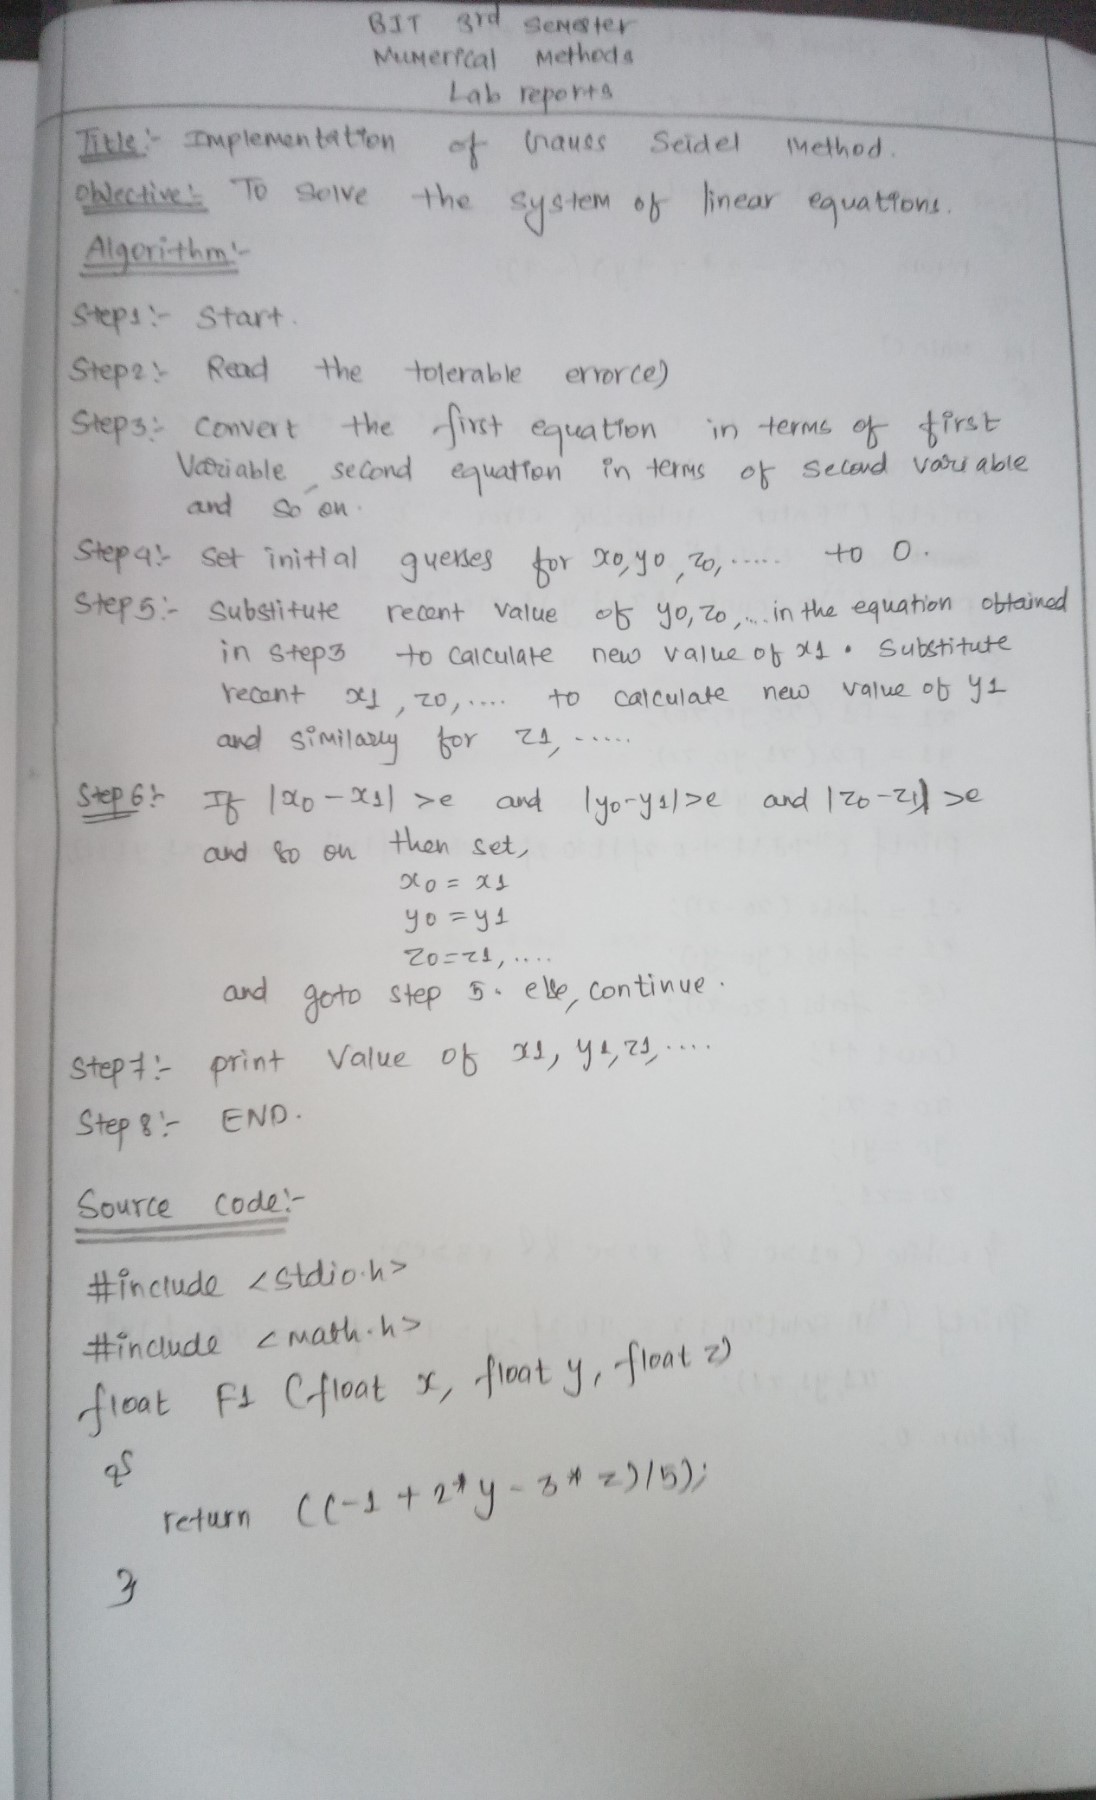 BIT 3rd Semester
Numerical Methods
Lab reports
Title:- Implementation of Gauss Seidel Method.
Objective:- To solve the system of linear equations.
Algorithm:-
Step1:- Start.
Step2:- Read the tolerable error(e)
Step3:- Convert the first equation in terms of first
Variable, second equation in terms of second variable
and so on.
Step4:- Set initial guesses for x0, y0, z0, ..... to 0.
Step5:- Substitute recent value of y0, z0, .... in the equation obtained
in step3 to calculate new value of x1. Substitute
recent x1, z0, .... to calculate new value of y1
and similarly for z1, .....
Step6:- If |x0-x1| >e and |y0-y1|>e and |z0-z1| >e
and so on then set,
x0 = x1
y0 = y1
z0=z1, ....
and goto step 5. else, continue.
Step7:- print value of x1, y1, z1, ....
Step8:- END.
Source code:-
#include <stdio.h>
#include <math.h>
float F1 (float x, float y, float z)
{
return ((-1 + 2*y - 3*z)/5);
}